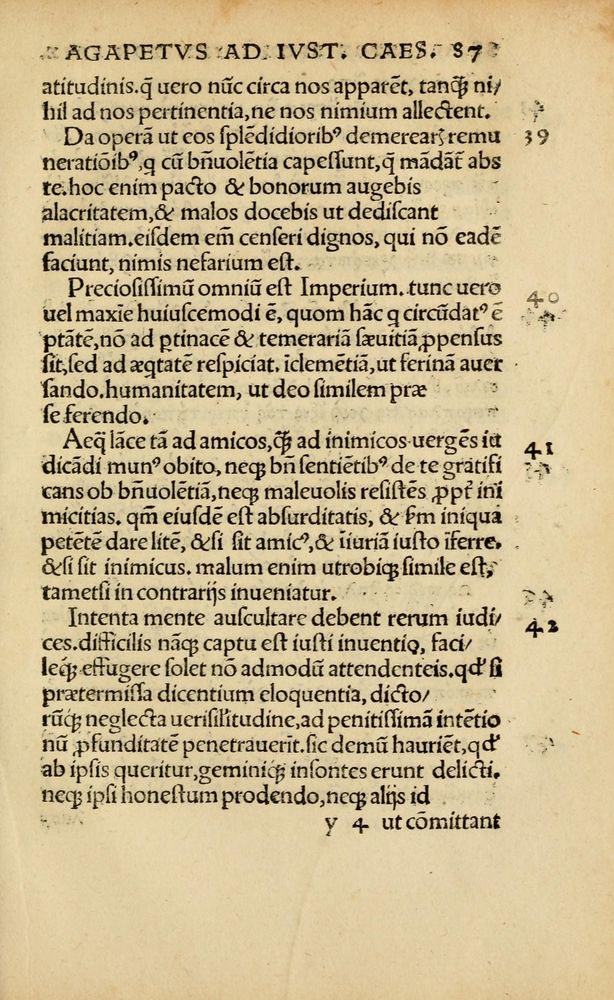 AGAPETVS AD IVST. CAES. 87
atitudinis. q̃ uero nũc circa nos apparẽt, tanq̃ȝ ni/
hil ad nos pertinentia, ne nos nimium allectent.
Da operã ut eos splẽdidiorib⁹ demerear̃ remu 39
neratiõib⁹, q cũ bñuolẽtia capessunt, q̃ mãdãt abs
te. hoc enim pacto & bonorum augebis
alacritatem, & malos docebis ut dediscant
malitiam. eisdem em̃ censeri dignos, qui nõ eadẽ
faciunt, nimis nefarium est.
Preciosissimũ omniũ est Imperium. tunc uero 40
uel maxĩe huiuscemodi ẽ, quom hãc q circũdat⁹ ẽ
ptãtẽ, nõ ad ptinacẽ & temerariã sæuitiã ꝓpensus
sit, sed ad æq̃tatẽ respiciat. ĩclemẽtiã, ut ferinã auer
sando. humanitatem, ut deo similem præ
se ferendo.
Aeq̃ lãce tã ad amicos, q̃ȝ ad inimicos uergẽs iu 41
dicãdi mun⁹ obito, neqȝ bñ sentiẽtib⁹ de te gratifi
cans ob bñuolẽtiã, neqȝ maleuolis resistẽs ꝓpt̃ ini
micitias. qm̃ eiusdẽ est absurditatis, & s̃m iniqua
petẽtẽ dare litẽ, & si sit amic⁹, & ĩiuriã iusto ĩferre.
& si sit inimicus. malum enim utrobiqȝ simile est,
tametsi in contrarijs inueniatur.
Intenta mente auscultare debent rerum iudi/ 42
ces. difficilis nãqȝ captu est iusti inuentio, faci/
leqȝ effugere solet nõ admodũ attendenteis. qđ si
prætermissa dicentium eloquentia, dicto/
rũqȝ neglecta uerisilitudine, ad penitissimã intẽtio
nũ ꝓfunditatẽ penetrauerĩt. sic demũ hauriẽt, qđ
ab ipsis queritur, geminiqȝ insontes erunt delicti.
neqȝ ipsi honestum prodendo, neqȝ alijs id
y 4 ut cõmittant